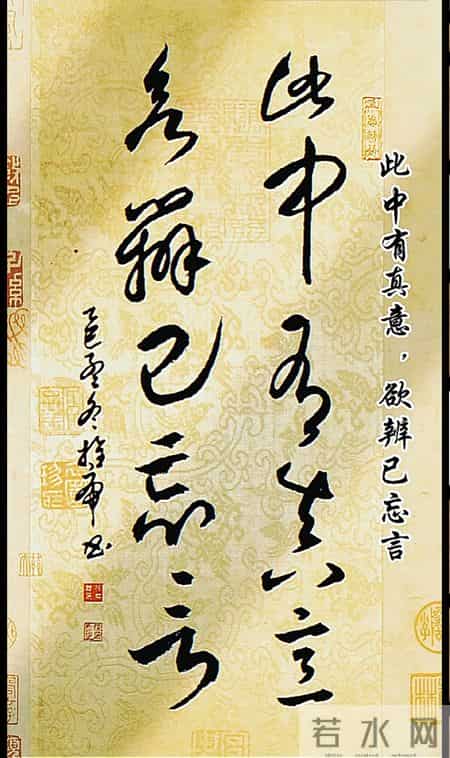 此中有真意，欲辨已忘言
此中有真意
欲辨已忘言
乙巳孟冬
书
若水网